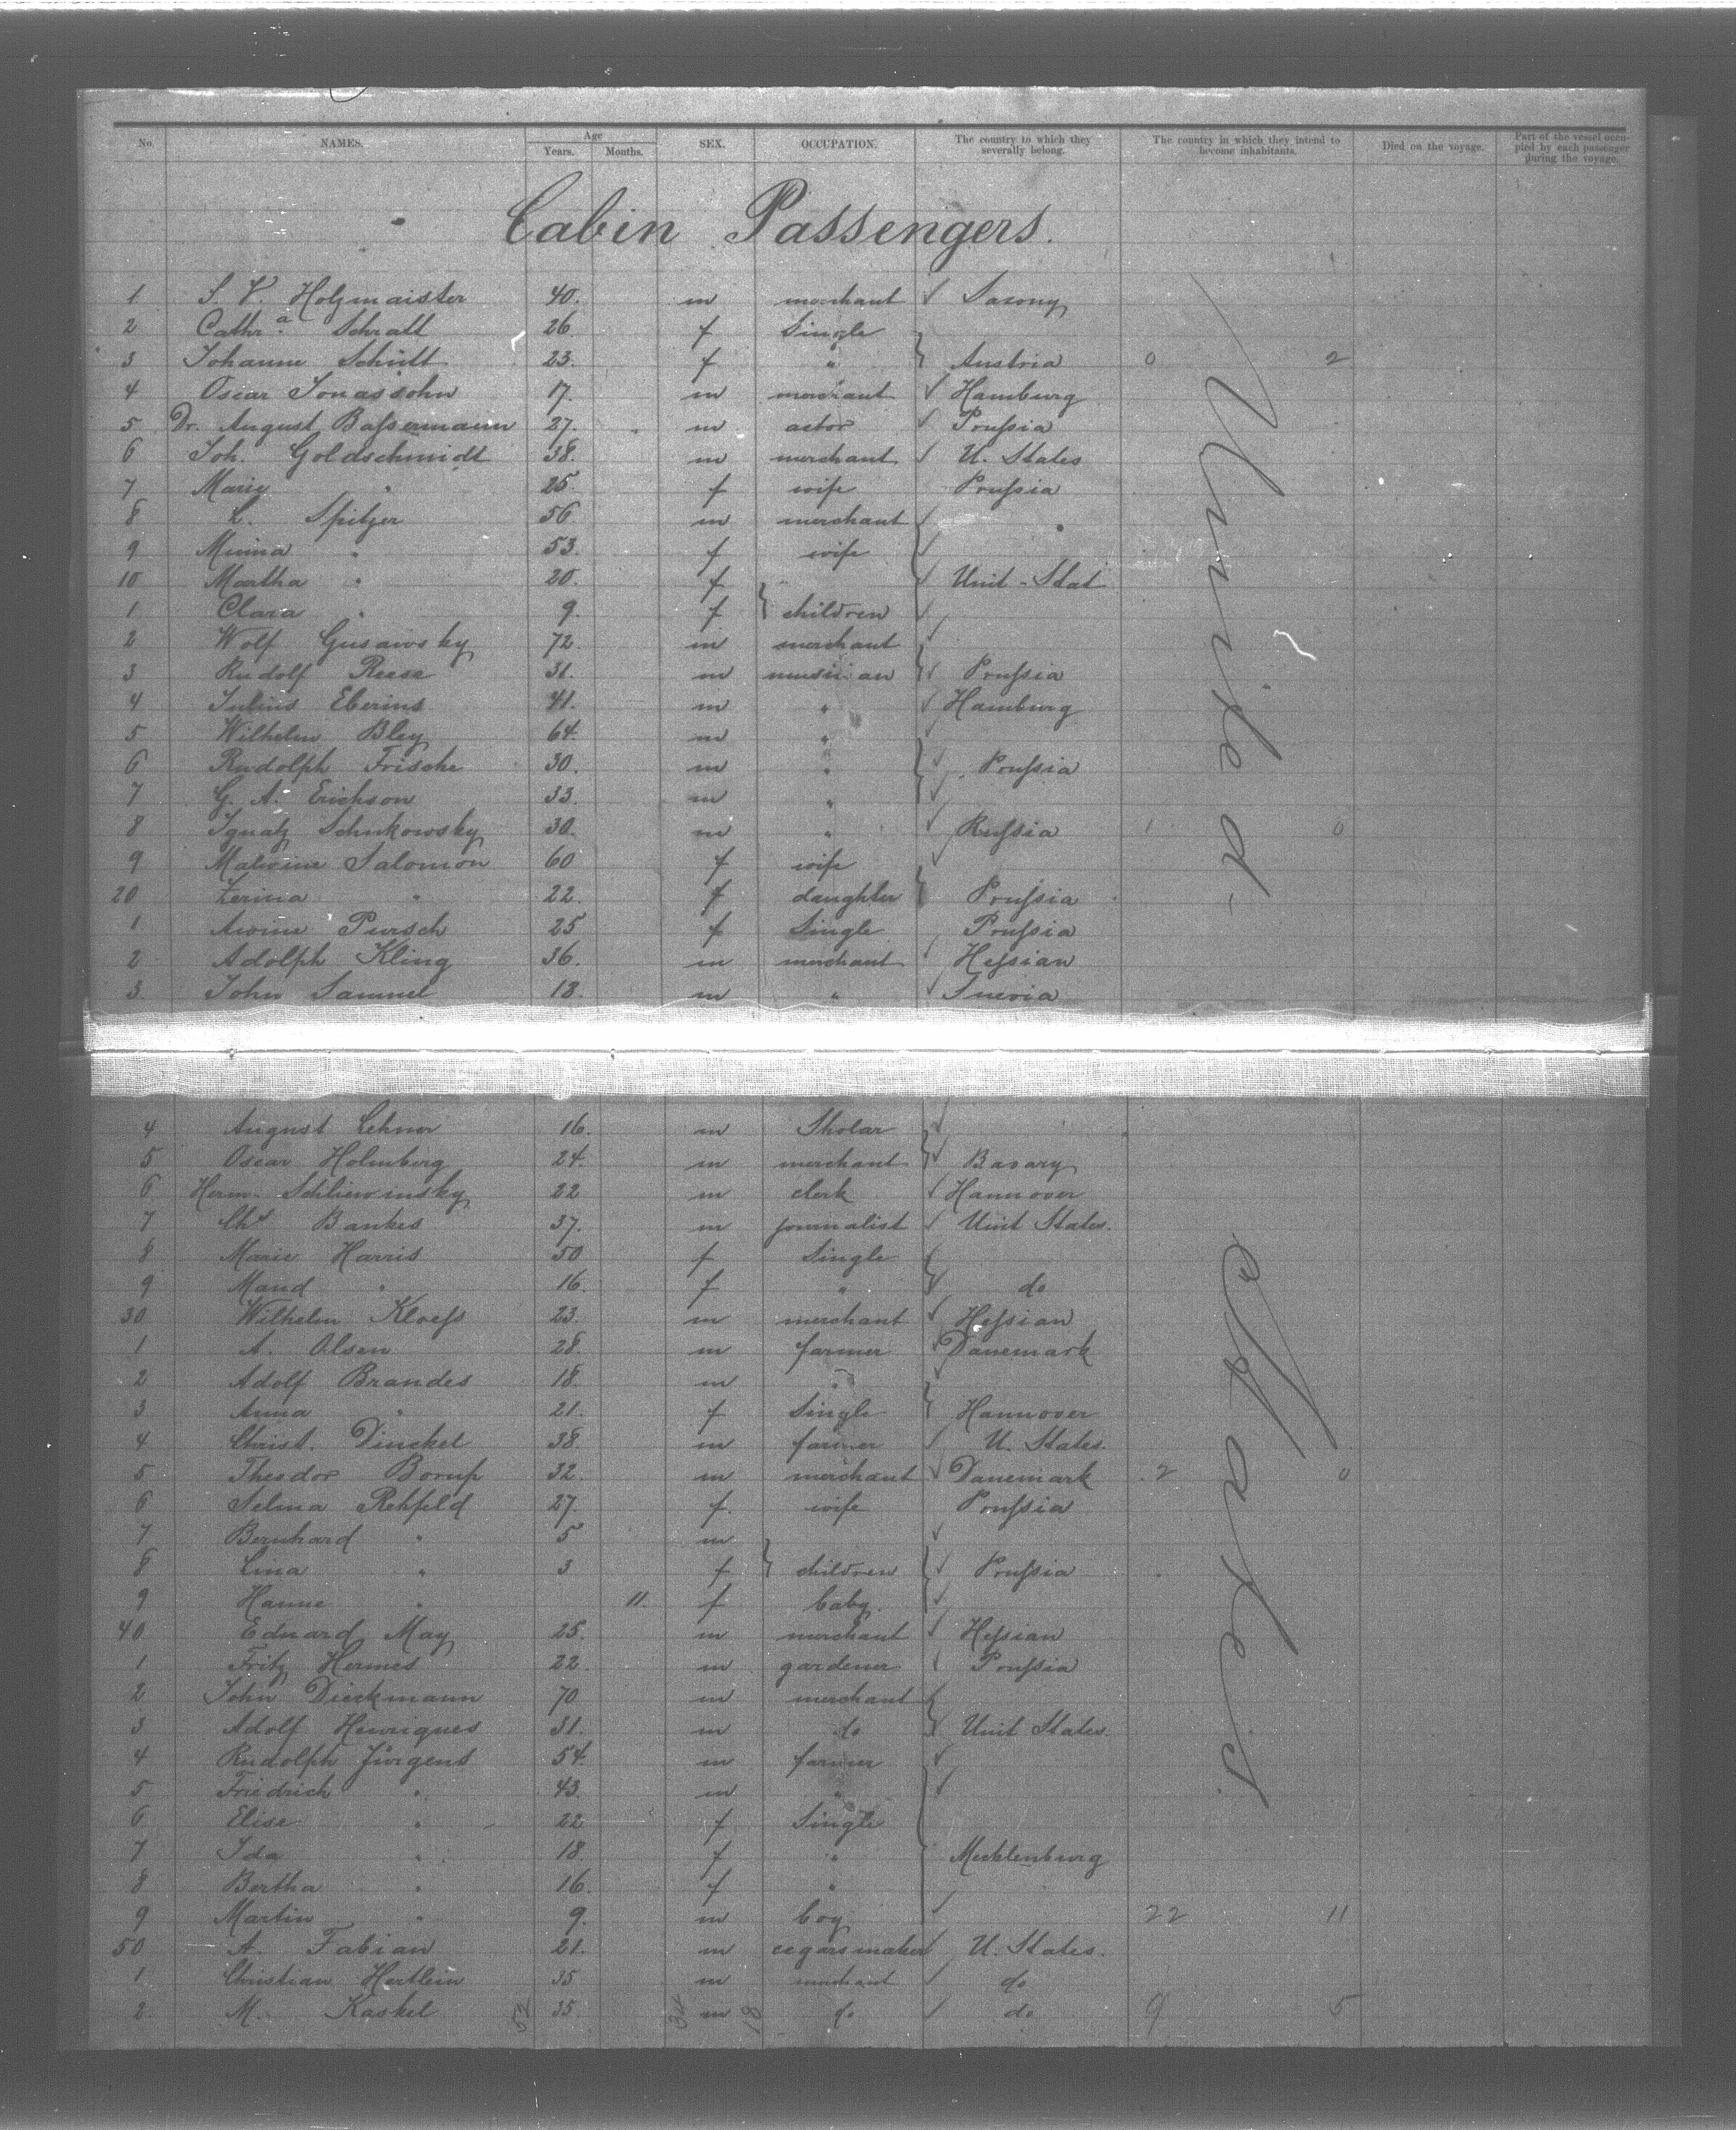 No. NAMES. Age Years. Months. SEX. OCCUPATION. The country to which they severally belong. The country in which they intend to become inhabitants. Died on the voyage. Part of the vessel occupied by each passenger during the voyage.
Cabin Passengers.
1 S. V. Holzmaister 40. m merchant Saxony
2 Cathr.a Schratt 26 f Single
3 Johanne Schütt 23. f " Austria 0 2
4 Oscar Jonassohn 17. m merchant Hamburg
5 Dr. August Baſsermann 27. m actor Pruſsia
6 Joh. Goldschmidt 38. m merchant U. States
7 Marie " 25 f wife Pruſsia
8 L. Spitzer 56 m merchant "
9 Minna " 53. f wife
10 Martha " 20. f Unit-Stat
1 Clara " 9. f children
2 Wolf Gusawsky 72 m merchant
3 Rudolf Reese 31. m musician Pruſsia
4 Julius Eberius 41. m " Hamburg
5 Wilhelm Bley 64. m "
6 Rudolph Frische 30. m " Pruſsia
7 G. A. Erichson 33. m "
8 Ignatz Schukowsky 30. m " Ruſsia 1 0
9 Malwine Salomon 60 f wife
20 Zerina " 22. f daughter Pruſsia
1 Pursch 25 f Single Pruſsia
2 Adolph Kling 36. m merchant Heſsian
3. John Samuel 18. m " Suevia
United
4 August Lehner 16. m Sholar
5 Oscar Holmberg 24. m merchant Bavary
6 Herm. Schliewinsky 22 m clerk Hannover
7 Chs Bankes 37. m journalist Unit States.
8 Marie Harris 50 f Single
9 Maud " 16. f " do
30 Wilhelm Kloeſs 23. m merchant Heſsian
1 A. Olsen 28. m farmer Danemark
2 Adolf Brandes 18. m "
3 Anna " 21. f Single Hannover
4 Christ. Dinckel 38. m farmer U. States.
5 Theodor Borup 32. m merchant Danemark 2 0
6 Selma Rehfeld 27. f. wife Pruſsia
7 Bernhard " 5 m
8 Lina " 3 f children Pruſsia
9 Hanne " 11. f baby.
40 Eduard May 25. m merchant Heſsian
1 Fritz Hermes 22. m gardener Pruſsia
2 John Dieckmann 70 m merchant
3 Adolf Henriques 31. m do Unit States.
4 Rudolph Jürgens 54. m farmer
5 Friedrich " 43. m "
6 Elise " 22 f Single
7 Ida " 18. f " Mecklenburg
8 Bertha " 16. f "
9 Martin " 9. m boy 22 11
50 A. Fabian 21. m cegarsmaker U. States.
1 Christian Hertlein 35 m merchant do
2 M. Kaskel 35. m do do 9 5
States
52 34 18